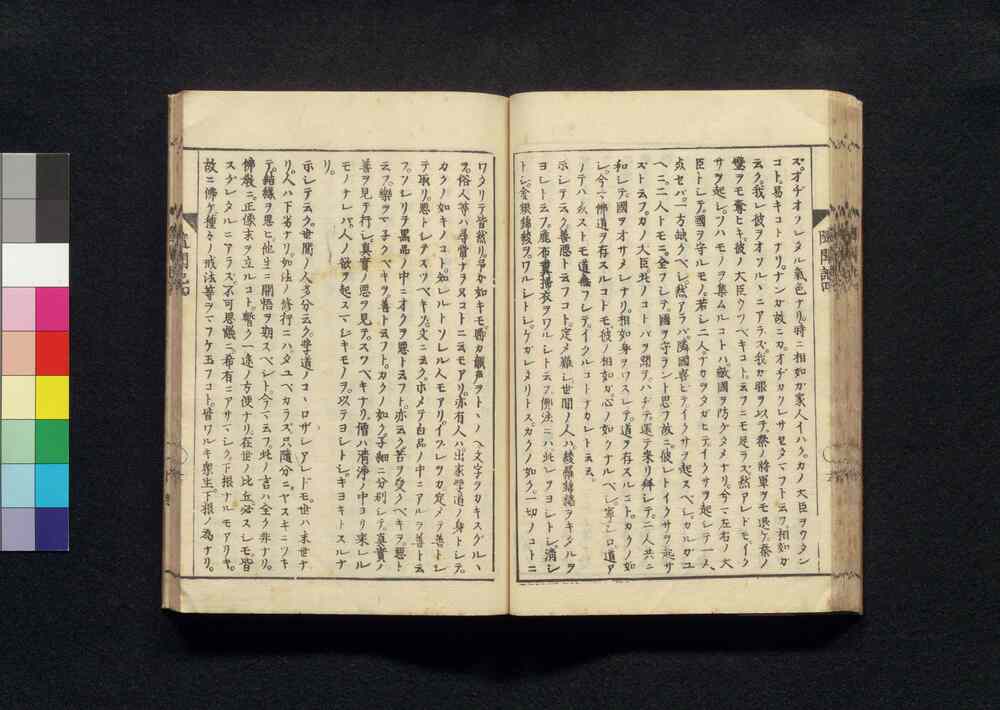 ス。オヂオソレタル氣色ナリ。時ニ相如カ家人イハク。カノ大臣ヲウタン
コト易キコトナリ。ナンカ故ニカ。オヂカクレサセタマフト云フ。相如カ
云ク。我レ彼ヲオソルヽニアラズ。我カ眼ヲ以テ。秦ノ將軍ヲモ退ケ。秦ノ
璧ヲモ奪ヒキ。彼ノ大臣ウツベキコト云フニモ足ラズ。然アレドモ。イク
サヲ起シ。ツハモノヲ集ムルコトハ。敵國ヲ防ケタメナリ。今マ左右ノ大
臣トシテ。國ヲ守ルモノ。若シ二人ナカヲタガヒテイクサヲ起シテ一人
死セバ。一方缺クベシ。然アラバ。隣國喜ヒテイクサヲ起スベシ。カルカユ
ヘニ二人トモニ。全フシテ。國ヲ守ラント思フ故ニ。彼レトイクサヲ起サ
ズト云フ。カノ大臣此ノコトバヲ聞ヲハチテ。還テ來リ拜シテ。二人共ニ
和シテ國ヲオサメシナリ。相如身ヲワスレテ。道ヲ存スルコト。カクノ如
シ。今マ佛道ヲ存スルコトモ。彼ノ相如カ。心ノ如クナルベシ。寧シロ道ア
ノテハ死ストモ道無フシテ。イクルコトナカレト云云。
示シテ云ク。善惡ト云フコト。定メ難シ。世間ノ人ハ綾羅錦繍ヲキタルヲ
ヨシト云フ。麁布糞掃衣ヲワルシト云フ。佛法ニハ此レヲヨシトシ。清シ
トシ。金銀錦綾ヲワルシトシ。ケガレタリトス。カクノ如ク。一切ノコトニ
ワタリテ皆然リ。予カ如キモ。聊カ韻声ヲトヽノヘ。文字ヲカキスグルヽ
ヲ。俗人等ハ尋常ナラヌコトニ云モアリ。亦有人ハ。出家學道ノ身トシテ。
カクノ如キノコト。知レルトソシル人モアリ。イツレヲカ定メテ善トシ
テ取リ。惡トシテスツベキソ。文ニ云ク。ホメテ白品ノ中ニアルヲ善ト云
フ。ソシリテ黒品ノ中ニオクヲ惡ト云フト。亦云ク。苦ヲ受クベキヲ。惡ト
云フ。樂ヲマ子クベキヲ。善ト云フト。カクノ如ク。子細ニ分別シテ。真實ノ
善ヲ見テ行シ。真實ノ惡ヲ見テ。スツベキナリ。僧ハ清淨ノ中ヨリ來レル
モノナレバ。人ノ欲ヲ起スマシキモノヲ。以テヨシトシ。キヨキトスルナ
リ。
示シテ云ク。世間ノ人多分云ク。學道ノコヽロザシアレドモ。世ハ末世ナ
リ。人ハ下劣ナリ。如法ノ修行ニハタユベカラズ。只隨分ニヤスキニツキ
テ。結縁ヲ思ヒ。他生ニ開悟ヲ期スベシト。今マ云フ。此ノ言ハ全ク非ナリ。
佛教ニ正像末ヲ立ルコト。暫ク一途ノ方便ナリ。在世ノ比丘必スシモ皆
スグレタルニアラズ。不可思議ニ。希有ニアサマシク。下根ナルモアリキ。
故ニ佛ケ。種々ノ戒法等ヲマフケ玉フコト。皆ワルキ衆生。下根ノ為ナリ。